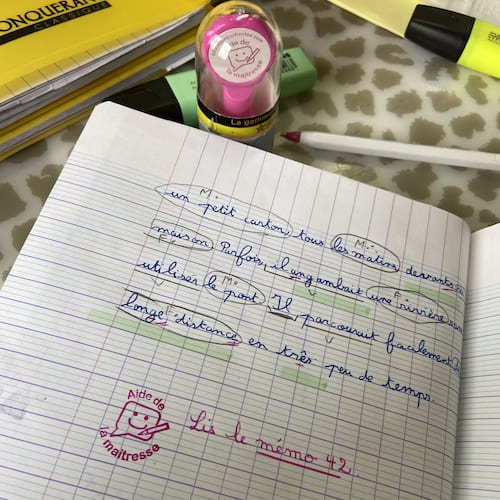 CONQUERANT
CLASSIQUE
Aide de
la maîtresse
La gamme
M.
M.
un petit carton, tous les matins devants sa
F.
maison. Parfois, il angambait une rivière sans
M.
F.
utiliser le pont. Il parcourait facilement
longe distance en très peu de temps.
Aide de
la maîtresse
Lis le mémo 42.